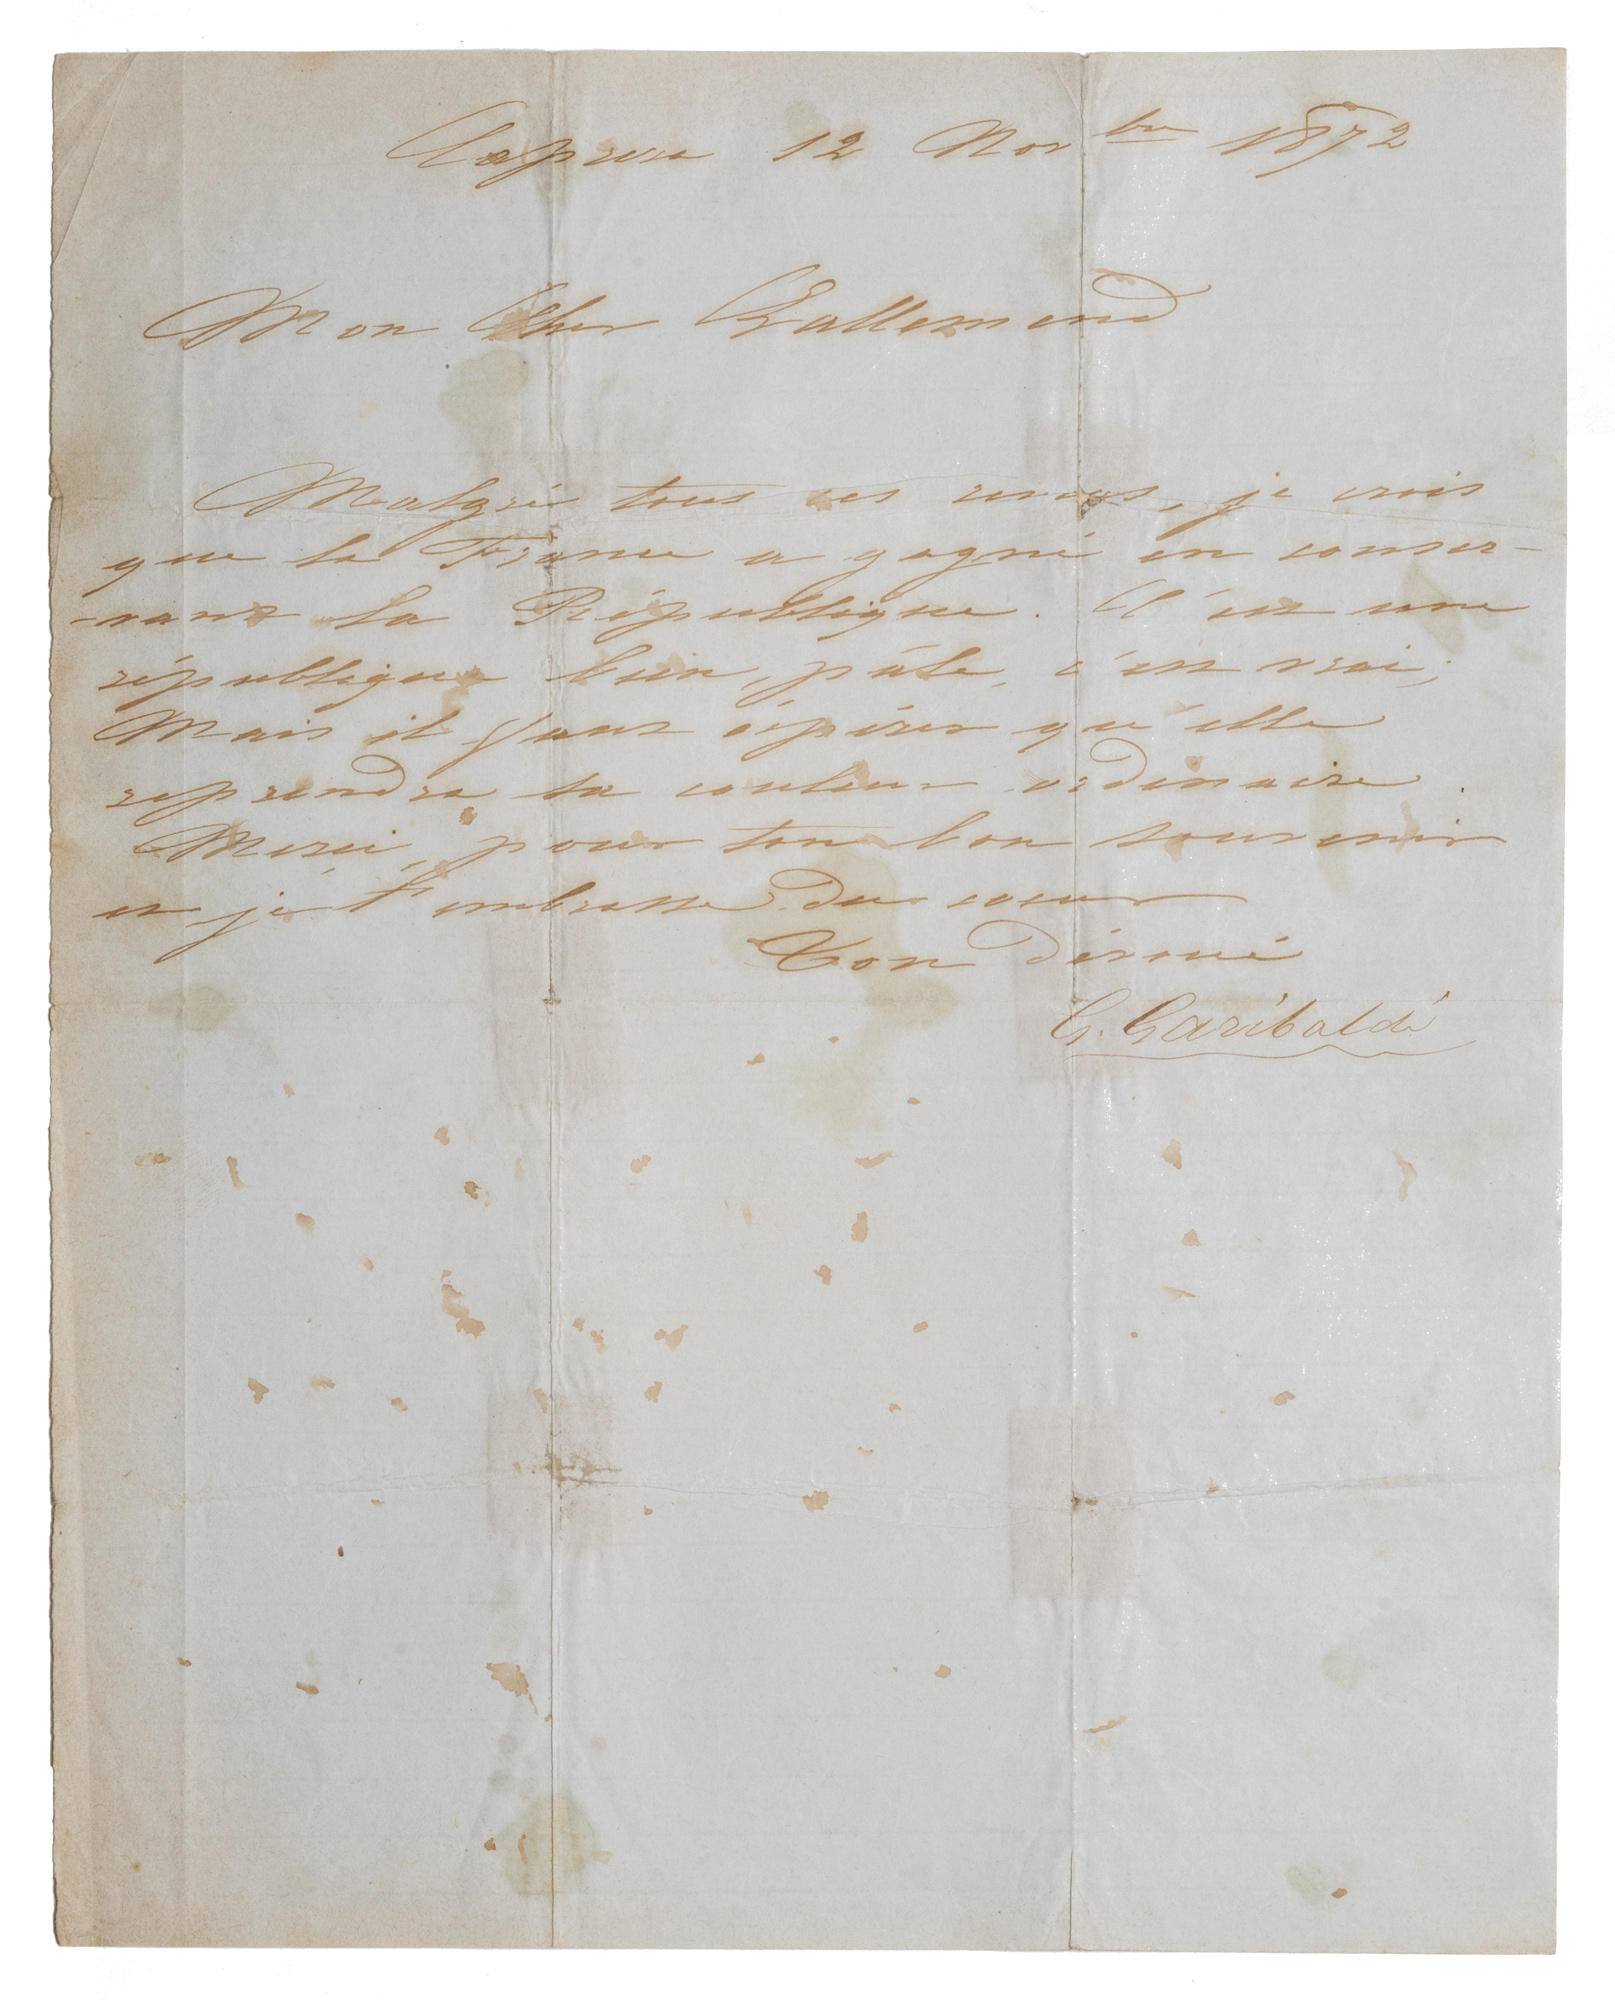 Caprera 12 Novbre 1872
Mon Cher Gallemend
Malgré tous ses , je crois
que la France a gagné en conser-
-vant la République. C'est une
république bien, pâle, c'est vrai;
Mais il faut éspérer qu'elle
reprendra sa couleur ordinaire.
Merci, pour ton bon souvenir
et je t'embrasse du coeur
Ton dévoué
G. Garibaldi